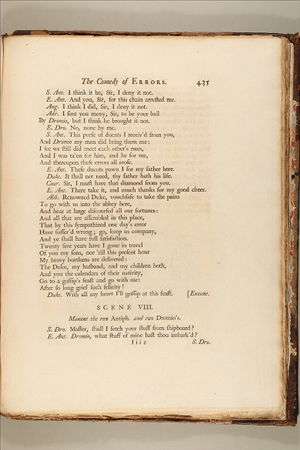 The Comedy of ERRORS. 435
S. Ant. I think it be, Sir, I deny it not.
E. Ant. And you, Sir, for this chain arrested me.
Ang. I think I did, Sir, I deny it not.
Adr. I sent you mony, Sir, to be your bail
By Dromio, but I think he brought it not.
E. Dro. No, none by me.
S. Ant. This purse of ducats I receiv'd from you,
And Dromio my man did bring them me:
I see we still did meet each other's man,
And I was ta'en for him, and he for me,
And thereupon these errors all arose.
E. Ant. These ducats pawn I for my father here.
Duke. It shall not need, thy father hath his life.
Cour. Sir, I must have that diamond from you.
E. Ant. There take it, and much thanks for my good cheer.
Abb. Renowned Duke, vouchsafe to take the pains
To go with us into the abbey here,
And hear at large discoursed all our fortunes:
And all that are assembled in this place,
That by this sympathized one day's error
Have suffer'd wrong; go, keep us company,
And ye shall have full satisfaction.
Twenty five years have I gone in travel
Of you my sons, nor 'till this present hour
My heavy burthens are delivered:
The Duke, my husband, and my children both,
And you the calendars of their nativity,
Go to a gossip's feast and go with me:
After so long grief such felicity!
Duke. With all my heart I'll gossip at this feast. [Exeunt.
SCENE VIII.
Manent the two Antiph. and two Dromio's.
S. Dro. Master, shall I fetch your stuff from shipboard?
E. Ant. Dromio, what stuff of mine hast thou imbark'd?
Iii2 S. Dro.